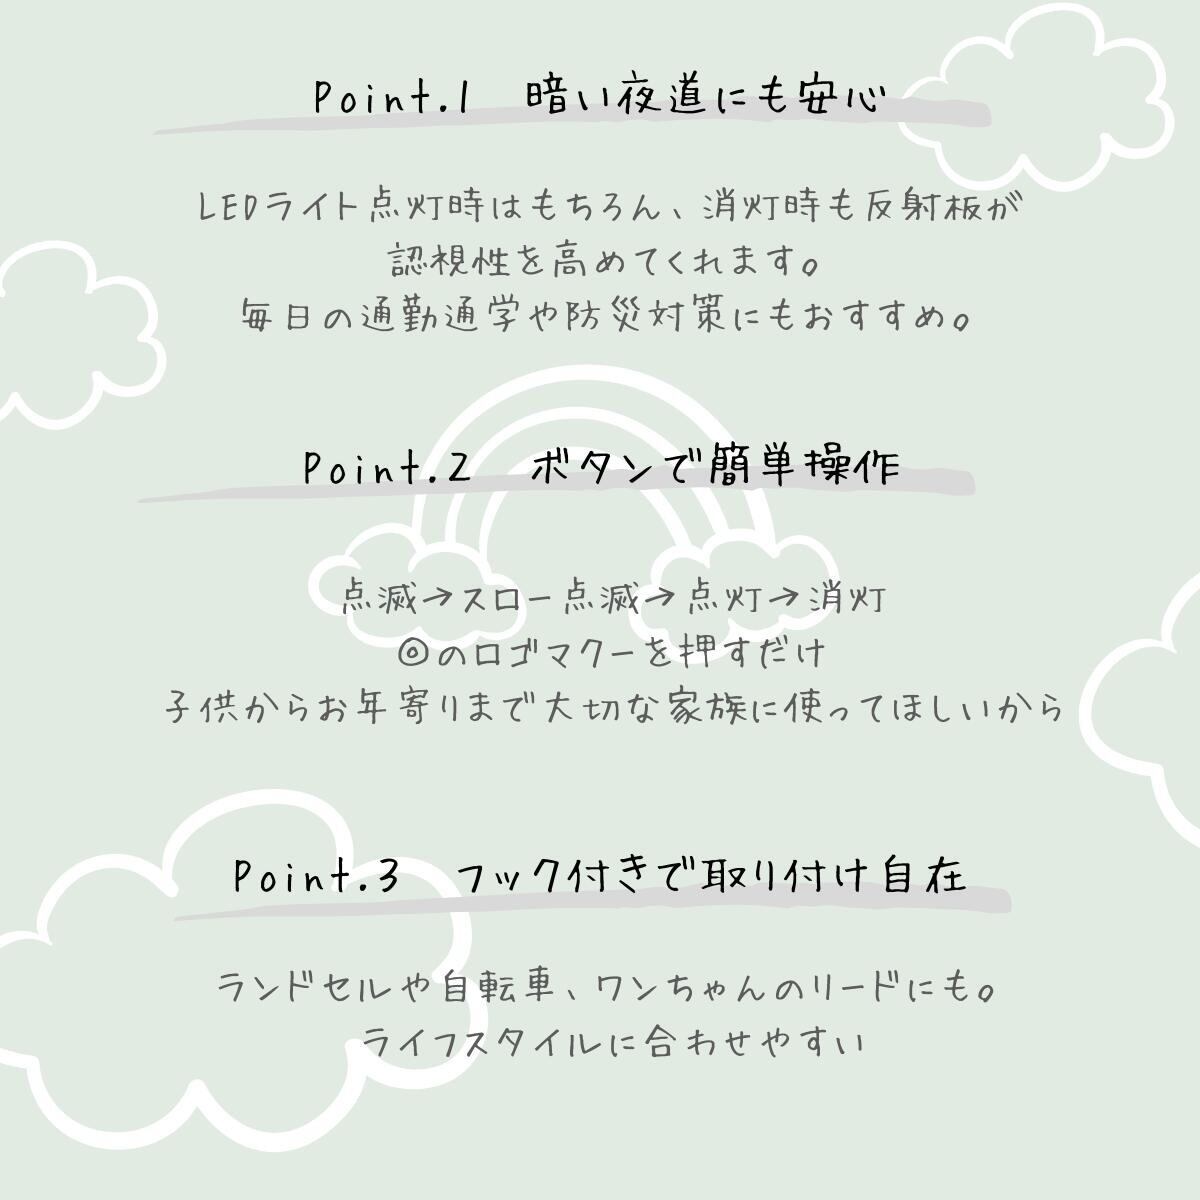 Point.1 暗い夜道にも安心
LEDライト点灯時はもちろん、消灯時も反射板が
認視性を高めてくれます。
毎日の通勤通学や防災対策にもおすすめ。
Point.2 ボタンで簡単操作
点滅→スロー点滅→点灯→消灯
◎のロゴマクーを押すだけ
子供からお年寄りまで大切な家族に使ってほしいから
Point.3 フック付きで取り付け自在
ランドセルや自転車、ワンちゃんのリードにも。
ライフスタイルに合わせやすい